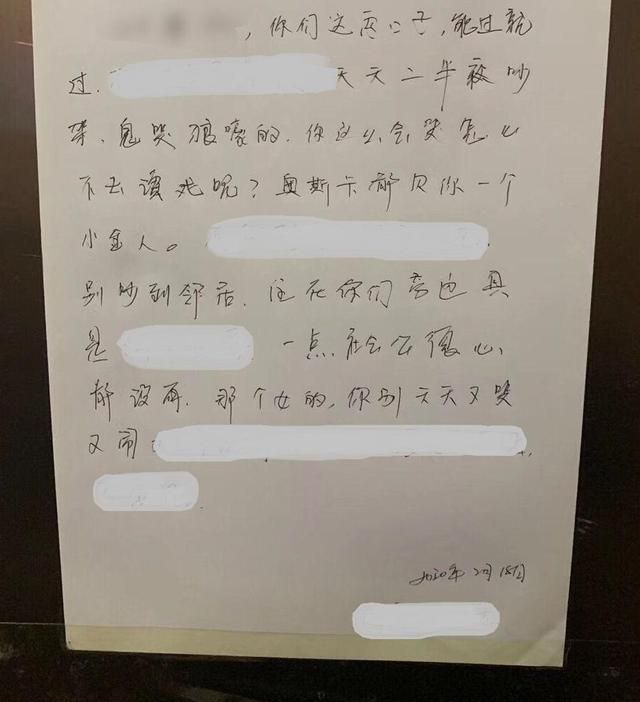 ，你们这两口子，能过就
过．天天二半夜吵
架、鬼哭狼嚎的．你这么会哭怎么
不去演戏呢？奥斯卡都欠你一个
小金人。
别吵到邻居．住在你们旁边真
是 一点社会公德心
都没有．那个女的，你别天天又哭
又闹
2020年2月18日